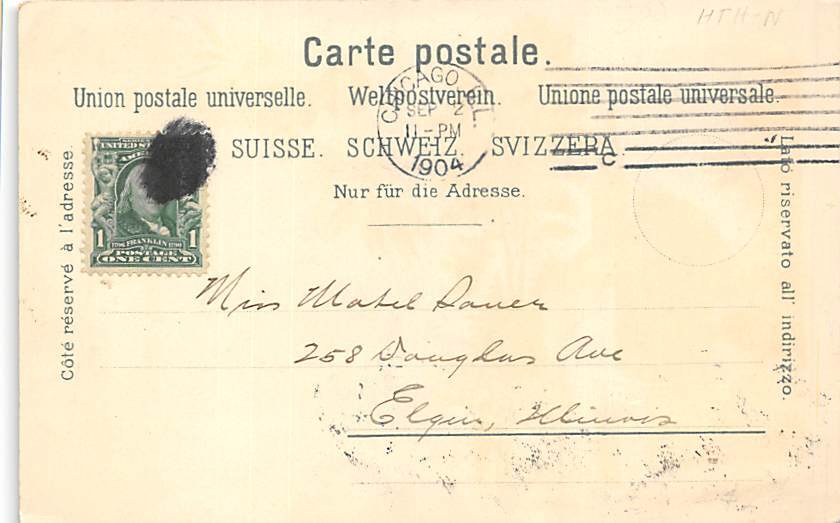 HTH-N
Carte postale.
Union postale universelle. Weltpostverein. Unione postale universale.
CHICAGO, ILL.
SEP 2
11-PM
1904
C
SUISSE. SCHWEIZ. SVIZZERA.
Nur für die Adresse.
Côté réservé à l'adresse.
Lato riservato all' indirizzo.
UNITED STATES
AMER
1 FRANKLIN 1
POSTAGE
ONE CENT
Miss Mabel Sauer
258 Douglas Ave
Elgin, Illinois